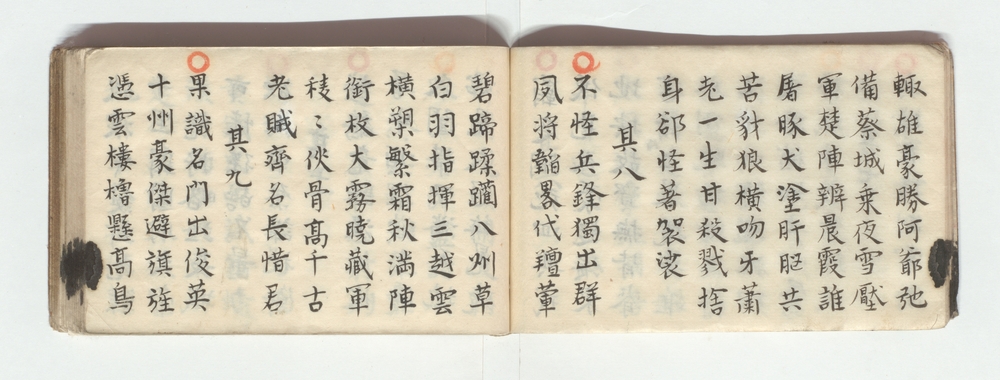 輙雄豪勝阿爺弛
備蔡城乗夜雪壓
軍楚陣辨晨霞誰
屠豚犬塗肝胆共
苦豺狼横吻牙蕭
老一生甘殺戮捨
身郤怪著袈裟
其八
不怪兵鋒獨出群
夙将韜畧伏羶葷
碧蹄蹂躪八州草
白羽指揮三越雲
横槊繁霜秋満陣
銜枚大霧暁藏軍
稜〻俠骨髙千古
老賊齊名長惜君
其九
果識名門出俊英
十州豪傑避旗旌
憑雲樓櫓懸髙鳥